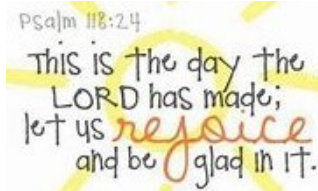 Psalm 118:24
This is the day the
LORD has made;
let us rejoice
and be glad in it.